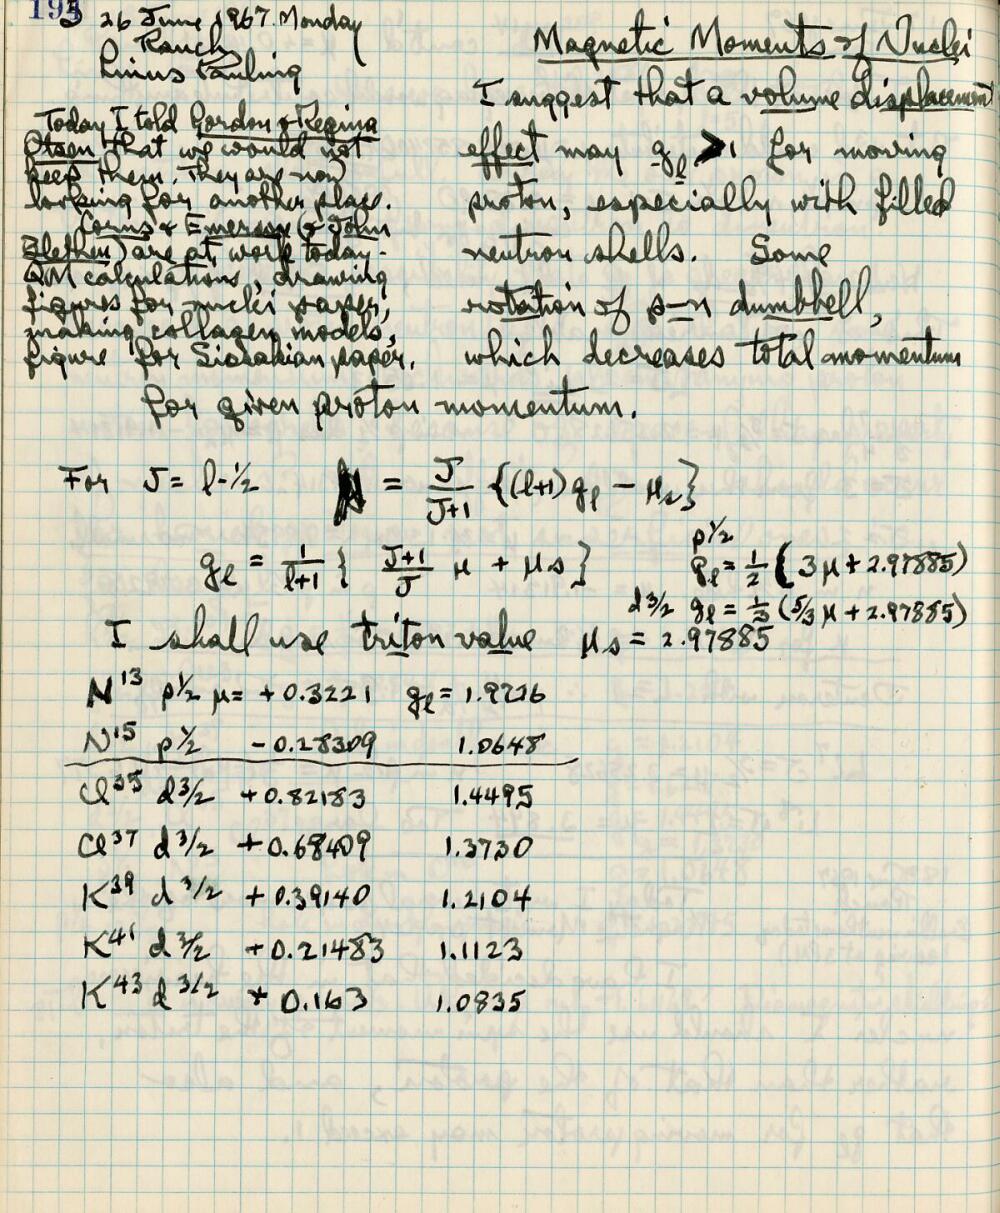 195 26 June 1967. Monday
Ranch
Linus Pauling
Today I told Gordon & Regina
Olson that we would not
keep them. They are now
looking for another place.
& Emerson (& John
Blethen) are at work today -
QM calculations, drawing
figures for nuclei paper,
making collagen models,
figure for paper.
Magnetic Moments of Nuclei
I suggest that a volume displacement
effect may gℓ > 1 for moving
proton, especially with filled
neutron shells. Some
rotation of p–n dumbbell,
which decreases total momentum
for given proton momentum.
For J = ℓ-1/2 μ = J/(J+1) {(ℓ+1)gℓ − μs}
gℓ = 1/(ℓ+1) { (J+1)/J μ + μs }
p1/2
gℓ = 1/2 (3μ + 2.97885)
d3/2 gℓ = 1/3 (5/3 μ + 2.97885)
I shall use triton value μs = 2.97885
N¹³ p½ μ = +0.3221 gℓ = 1.9726
N¹⁵ p½ −0.28309 1.0648
Cl³⁵ d3/2 +0.82183 1.4495
Cl³⁷ d3/2 +0.68409 1.3730
K³⁹ d3/2 +0.39140 1.2104
K⁴¹ d3/2 +0.21483 1.1123
K⁴³ d3/2 +0.163 1.0835